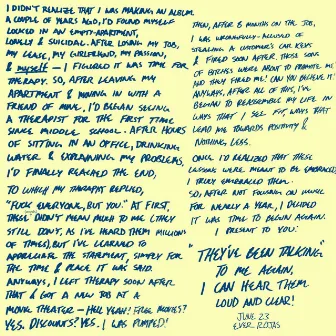 I DIDN'T REALIZE THAT I WAS MAKING AN ALBUM
A COUPLE OF YEARS AGO, I'D FOUND MYSELF
LOCKED IN AN EMPTY-APARTMENT,
LONELY & SUICIDAL. AFTER LOSING MY JOB,
MY LEASE, MY GIRLFRIEND, MY PASSION,
& MYSELF — I FIGURED IT WAS TIME FOR
THERAPY. SO, AFTER LEAVING MY
APARTMENT & MOVING IN WITH A
FRIEND OF MINE, I'D BEGAN SEEING
A THERAPIST FOR THE FIRST TIME
SINCE MIDDLE SCHOOL. AFTER HOURS
OF SITTING IN AN OFFICE, DRINKING
WATER & EXPLAINING MY PROBLEMS,
I'D FINALLY REACHED THE END,
TO WHICH MY THERAPIST REPLIED,
"FUCK EVERYONE, BUT YOU." AT FIRST,
THESE DIDN'T MEAN MUCH TO ME (THEY
STILL DON'T, AS I'VE HEARD THEM MILLIONS
OF TIMES), BUT I'VE LEARNED TO
APPRECIATE THE STATEMENT, SIMPLY FOR
THE TIME & PLACE IT WAS SAID.
ANYWAYS, I LEFT THERAPY SOON AFTER
THAT & GOT A NEW JOB AT A
MOVIE THEATER — HELL YEAH! FREE MOVIES?
YES. DISCOUNTS? YES. I WAS PUMPED!
THEN, AFTER 8 MONTHS ON THE JOB,
I WAS WRONGFULLY-ACCUSED OF
STEALING A CUSTOMER'S CAR KEYS
& FIRED SOON AFTER. THOSE SONS
OF BITCHES WERE ABOUT TO PROMOTE ME!
AND THEY FIRED ME! CAN YOU BELIEVE IT?
ANYWAYS, AFTER ALL OF THIS, I'VE
BEGAN TO REASSEMBLE MY LIFE IN
WAYS THAT I SEE FIT, WAYS THAT
LEAD ME TOWARDS POSITIVITY &
NOTHING LESS.
ONCE I'D REALIZED THAT THESE
LESSONS WERE MEANT TO BE EMBRACED,
I TRULY EMBRACED THEM.
SO, AFTER NOT FOCUSING ON MUSIC
FOR NEARLY A YEAR, I DECIDED
IT WAS TIME TO BEGIN AGAIN.
I PRESENT TO YOU:
"THEY'VE BEEN TALKING
TO ME AGAIN,
I CAN HEAR THEM
LOUD AND CLEAR!
JUNE 23
EVER ROJAS